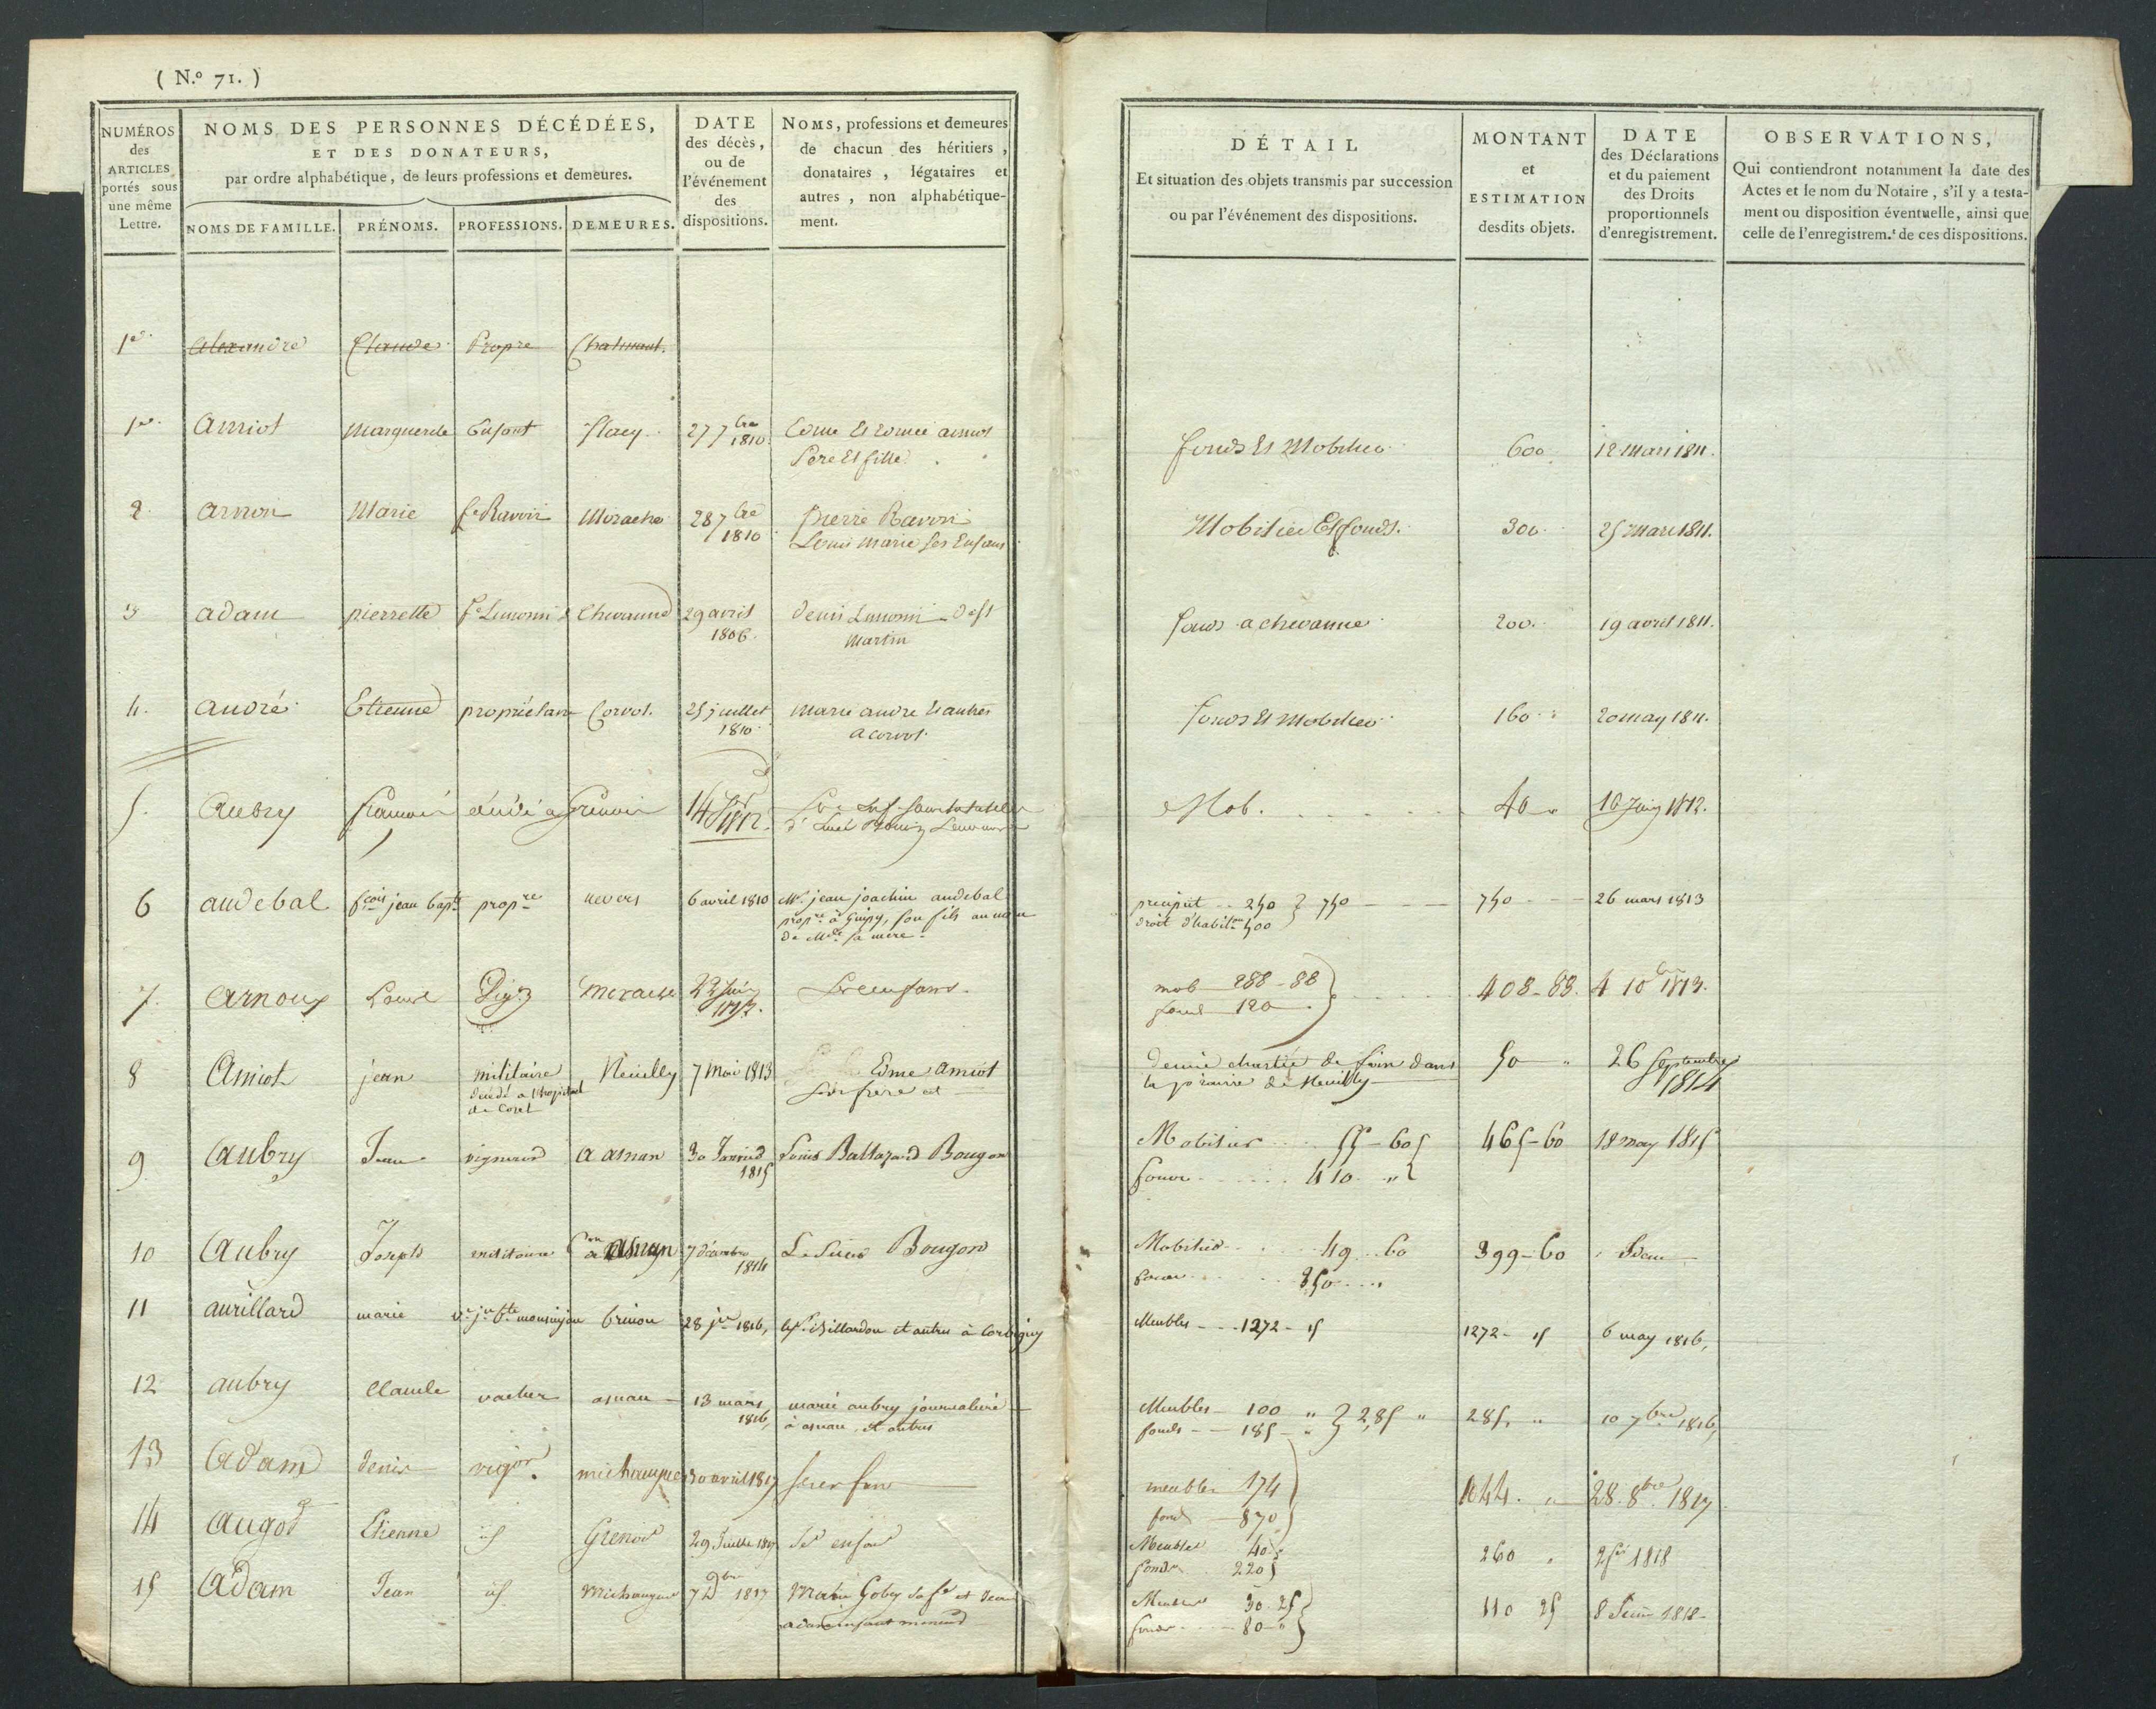 ( N.º 71. )
NUMÉROS des ARTICLES portés sous une même Lettre.
NOMS DES PERSONNES DÉCÉDÉES,
ET DES DONATEURS,
par ordre alphabétique, de leurs professions et demeures.
NOMS DE FAMILLE. PRÉNOMS. PROFESSIONS. DEMEURES.
DATE des décès, ou de l'événement des dispositions.
NOMS, professions et demeures
de chacun des héritiers,
donataires, légataires et
autres, non alphabétique-
ment.
DÉTAIL
Et situation des objets transmis par succession
ou par l'événement des dispositions.
MONTANT
et
ESTIMATION
desdits objets.
DATE
des Déclarations
et du paiement
des Droits
proportionnels
d'enregistrement.
OBSERVATIONS,
Qui contiendront notamment la date des
Actes et le nom du Notaire, s'il y a testa-
ment ou disposition éventuelle, ainsi que
celle de l'enregistrem.t de ces dispositions.
1er Alexandre Claude Propre
1er Amiot marguerite Enfant flacy 27 7bre 1810 Come Et Edmée amiot
Pere Et fille fonds Et Mobilier 600 12 mars 1811.
2 arnon Marie fe Ravoir Morache 28 7bre 1810 pierre Ravoir
Louis marie ses Enfans Mobilier Et fonds. 300 25 mars 1811.
3 adam pierrette Chevanne 29 avril 1806 denis
martin fonds a chevanne 200. 19 avril 1811.
4. andré Etienne propriétaire Corvol. 25 juillet 1810 marie andre Et autres
a corvol. fonds Et Mobilier 160 20 may 1811.
5. Aubry françois décédé a Grenois 14 1812. Mob. 40 " 10 Juin 1812.
6 audebal fcois jean bapte propre nevers 6 avril 1810 Mr. jean joachim audebal
propre à Guipy, son fils au nom
de Mde sa mere. preciput .. 250 } 750
droit d'habiton 500 750 26 mars 1813
7. Arnoux Louise Vigon Morache 22 Juin Ses enfans. mob 288-88
fonds 120 408-88. 4 10bre 1813.
8 Amiot jean militaire
décédé a l'hopital
de Neuilly 7 Mai 1813 Edme Amiot
Son frere et demie chartée de foin dans
la prairie de Neuilly 50 " 26 Septembre 1814
9 Aubry Jean vigneron a asnan 30 Janvier 1815 Louis Baltazard Bougon Mobilier 55-60
fonds 410 " 465-60 18 may 1815
10 Aubry Joseph militaire a asnan 7 décembre 1814 Le Sieur Bougon Mobilier 49..60
fonds 350 399-60 Idem
11 aurillard marie ve jn bte monsinjon brinon 28 jer 1816, et autres à Corbigny Meubles 1272-15 1272-15 6 may 1816,
12 aubry Claude vacher asnan 13 mars 1816, marie aubry journaliere
à asnan, et autres Meubles 100 " } 285 "
fonds 185 " 285, " 10 7bre 1816,
13 Adam denis vigon michaugue 30 avril 1817 ses enfans meubles 174
fonds 870 1044. " 28. 8bre 1817
14 Augot Etienne id Grenois 29 Juillet 1817 Ses enfans Meubles 40
fonds 220 260 1818
15 Adam Jean id Michaugue 7 9bre 1817 Marie Goby sa fe et Jean
adam enfant mineur Meubles 30.25
fonds 80 " 110 25 8 Juin 1818